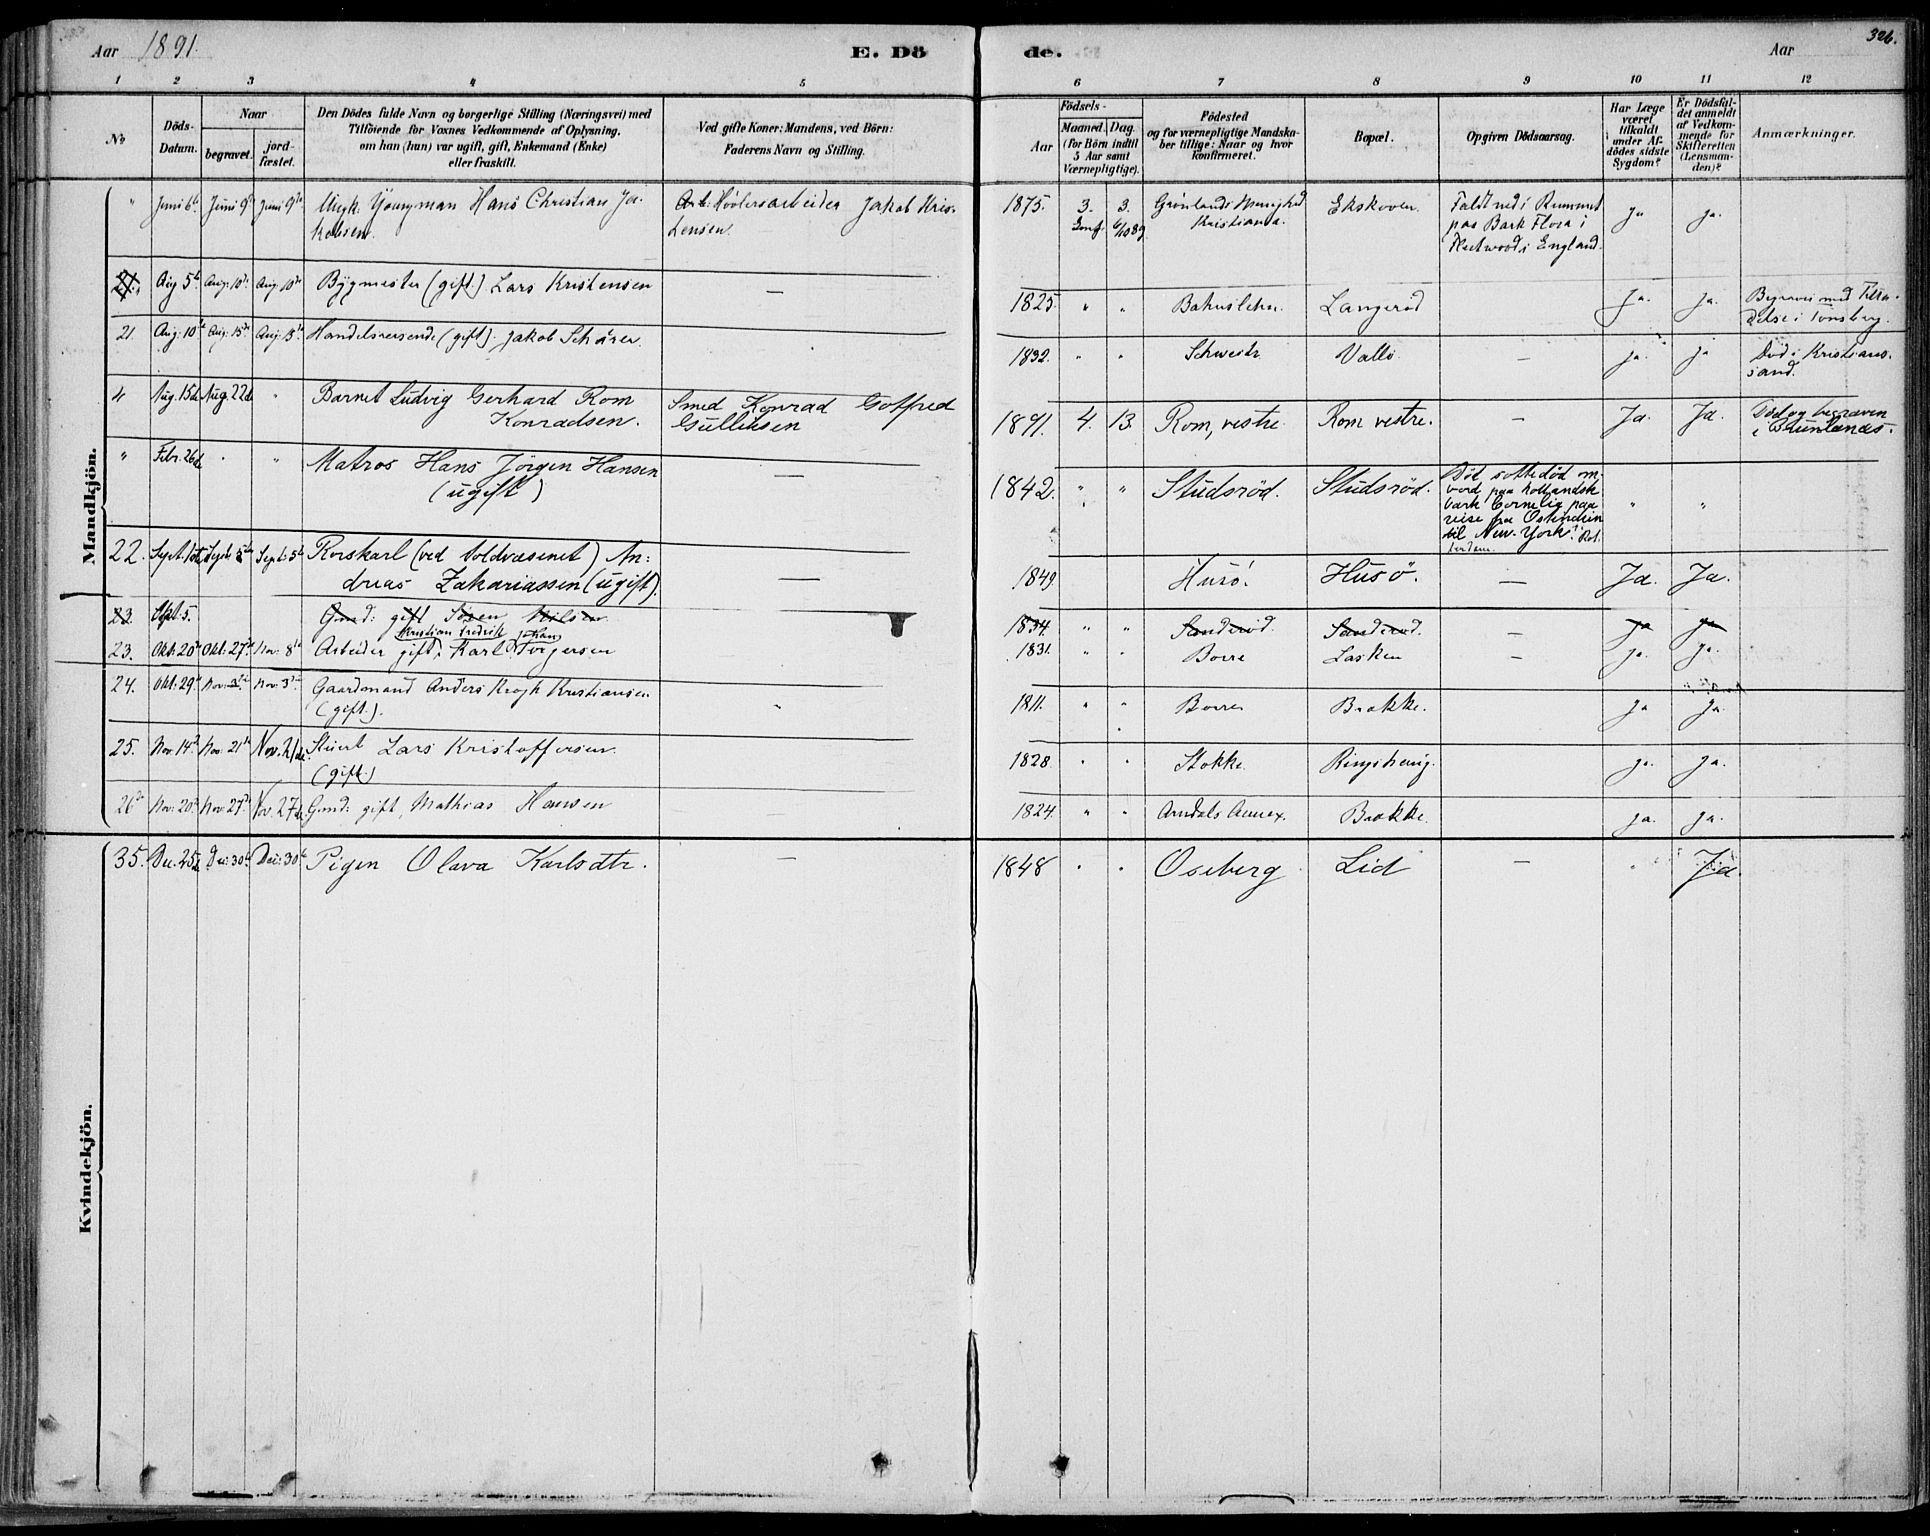 Aar 1891. E. Dö de. Aar 326.
1 2 3 4 5 6 7 8 9 10 11 12
No
Döds-Datum.
Naar
begravet.
jord-fæstet.
Den Dödes fulde Navn og borgerlige Stilling (Næringsvei) med
Tilföiende for Voxnes Vedkommende af Oplysning,
om han (hun) var ugift, gift, Enkemand (Enke)
eller fraskilt.
Ved gifte Koner: Mandens, ved Börn:
Faderens Navn og Stilling.
Födsels-
Aar
Maaned. Dag.
(for Börn indtil
5 Aar samt
Værnepligtige).
Födested
og for værnepligtige Mandska-
ber tillige: Naar og hvor
konfirmeret.
Bopæl.
Opgiven Dödsaarsag.
Har Læge
været
tilkaldt
under Af-
dödes sidste
Sygdom?
Er Dödsfal-
det anmeldt
af Vedkom-
mende for
Skifteretten
(Lensman-
den)?
Anmærkninger.
Mandkjön.
" Juni 6te Juni 9de Juni 9de Ungk: Youngman Hans Christian Ja-
kobsen. Arb: Høvleriarbeider Jakob Kris-
tensen. 1875. 3. 3. Grønlands Menighed
Kristiania. Ekskoven. Faldt ned i Rummet
paa Bark Flora i
Fleetwood i England. ja ja.
Aug 5te Aug: 10de Aug: 10de Bygmester (gift.) Lars Kristensen — 1825. " " Bahuslehn. Langerød Ja. ja. Begravet med Tilla-
delse i Tønsberg.
21. Aug: 10de Aug: 15de Aug: 15de Handelsreisende (gift). Jakob Schärer. 1832. " " Schweitz Vallø — ja. ja Død i Kristians-
sand.
4 Aug. 15de Aug. 22de " Barnet Ludvig Gerhard Rom
Konradsen. Smed Konrad Gotfred
Gulliksen 1891. 4. 13. Rom, vestre Rom vestre. — Ja. Ja. Død og begraven
i Brunlanæs.
" Febr. 26de " " Matros Hans Jörgen Hansen
(ugift) — 1842. " " Studsröd. Studsröd. Död sottedöd om
bord paa hollandsk
bark Cornelia paa
reise fra Ostindien
til New-York. Rot-
terdam. " "
22. Sept. 1ste Sept: 5te Sept: 5te Rorskarl (ved toldvæsenet) An-
dreas Zakariassen (ugift). — 1849. Husö. Husö. — Ja. Ja.
23. Spt. 5. Gmd: gift Søren Nilsen 1834. " " Sanderød. Sanderød. — ja ja
Kristian Fredrik Hans
23. Okt: 20de Okt: 27de Nov: 8de Arbeider gift, Karl Jørgensen 1831. " " Borre Lasken — ja. ja.
24. Okt: 29de Nov: 3die Nov: 3die Gaardmand Anders Krogh Kristiansen
(gift.). " 1811. " " Borre Brakke. ja ja.
25. Nov: 14de Nov: 21de Nov. 21de Stuert Lars Kristoffersen
(gift.) 1828. " " Stokke Ringshaug. ja. ja.
26de Nov: 20de Nov: 27de Nov. 27de Gmd: gift, Mathias Hansen 1824. " " Arndals Annex. Brakke. ja. ja.
Kvindekjön.
35. Dec. 25de Dec: 30te Dec: 30te Pigen Olava Karlsdtr. — 1848 " " Oseberg Lid — " Ja.